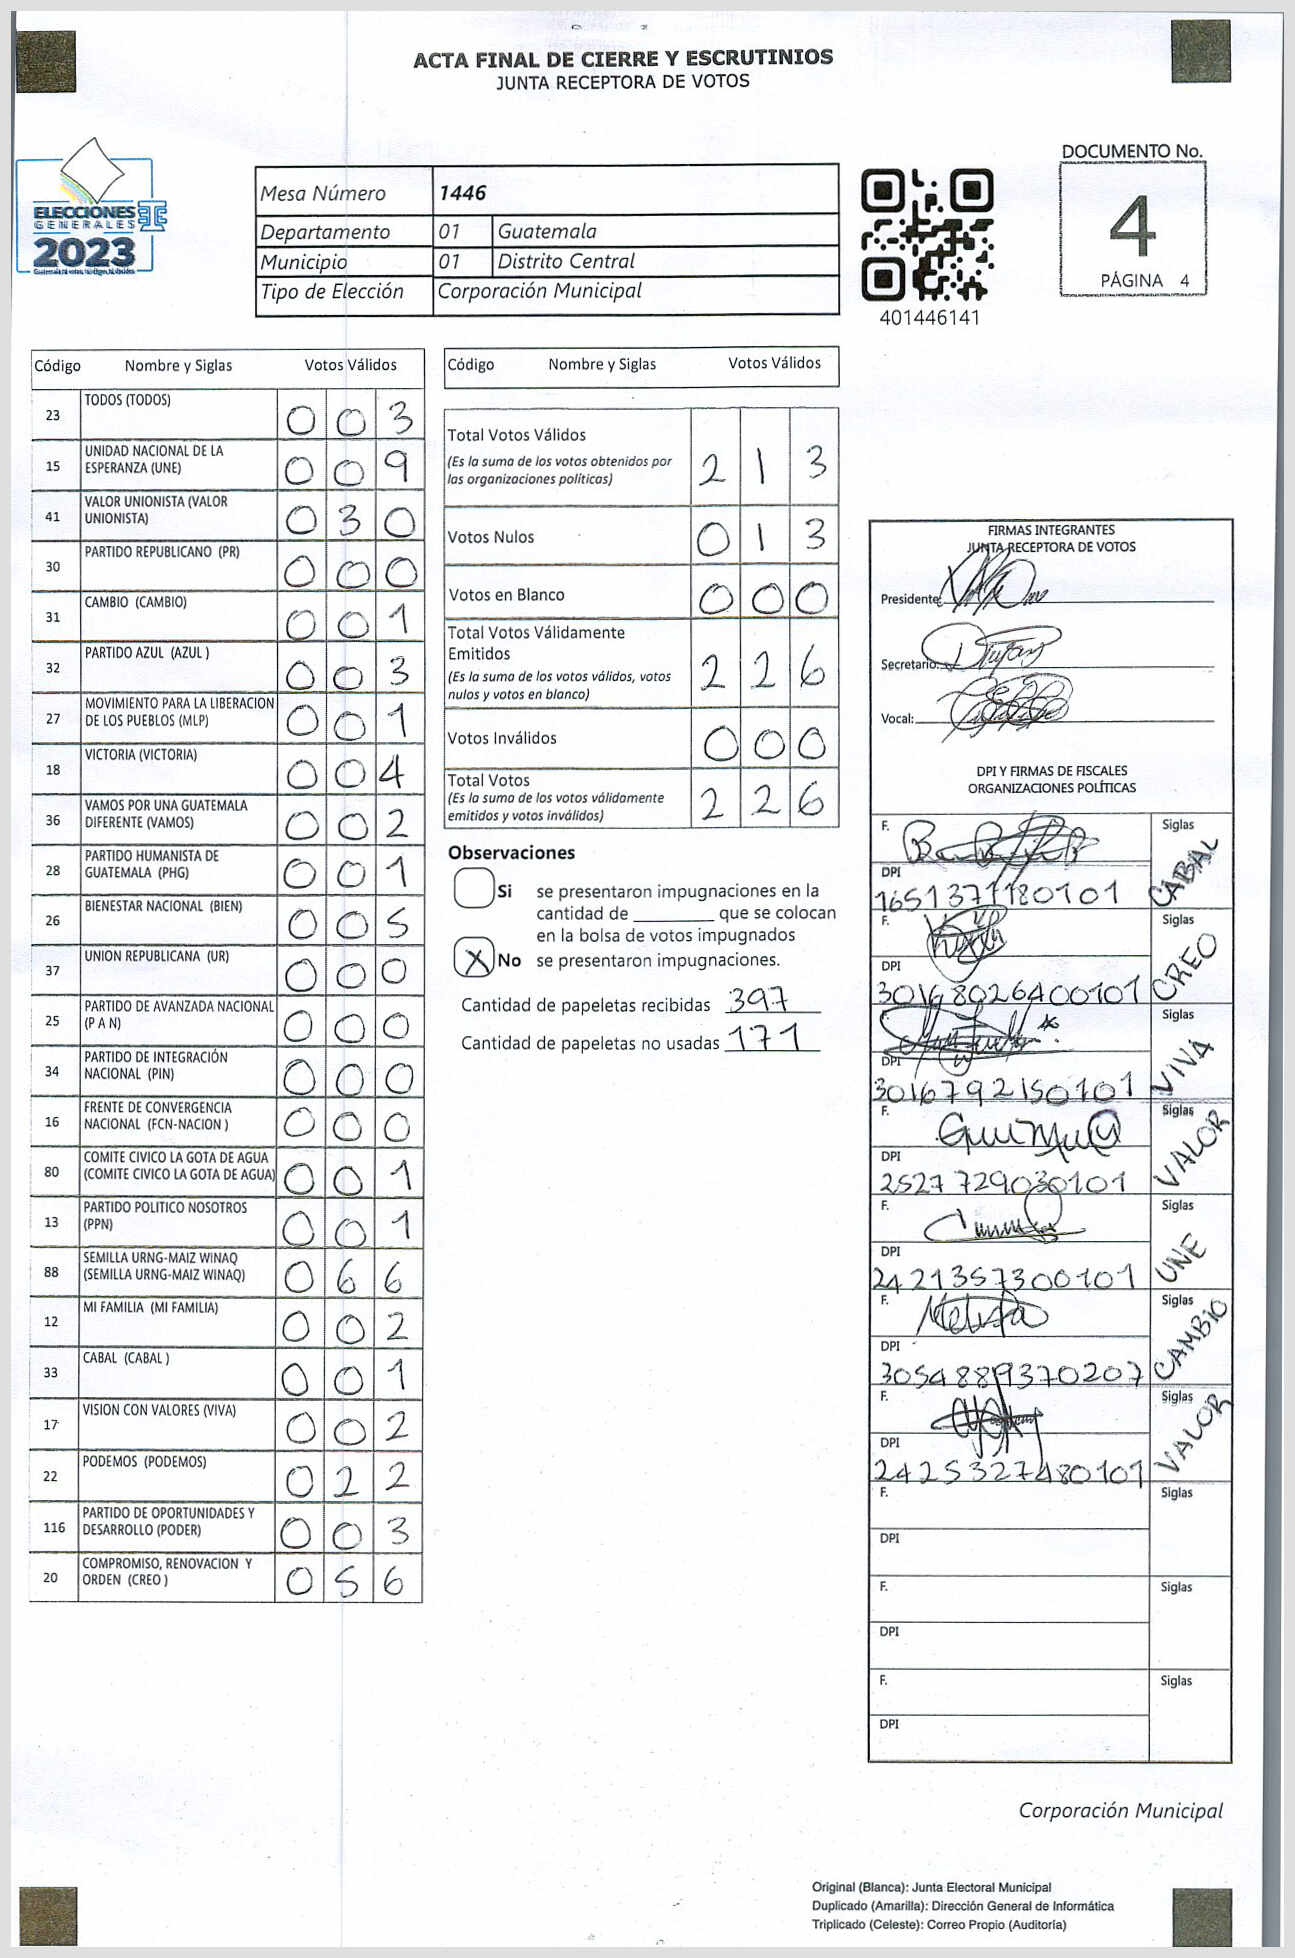 ACTA FINAL DE CIERRE Y ESCRUTINIOS
JUNTA RECEPTORA DE VOTOS
ELECCIONES
GENERALES
2023
Mesa Número 1446
Departamento 01 Guatemala
Municipio 01 Distrito Central
Tipo de Elección Corporación Municipal
401446141
DOCUMENTO No.
4
PÁGINA 4
Código Nombre y Siglas Votos Válidos
23 TODOS (TODOS) 0 0 3
15 UNIDAD NACIONAL DE LA
ESPERANZA (UNE) 0 0 9
41 VALOR UNIONISTA (VALOR
UNIONISTA) 0 3 0
30 PARTIDO REPUBLICANO (PR) 0 0 0
31 CAMBIO (CAMBIO) 0 0 1
32 PARTIDO AZUL (AZUL ) 0 0 3
27 MOVIMIENTO PARA LA LIBERACION
DE LOS PUEBLOS (MLP) 0 0 1
18 VICTORIA (VICTORIA) 0 0 4
36 VAMOS POR UNA GUATEMALA
DIFERENTE (VAMOS) 0 0 2
28 PARTIDO HUMANISTA DE
GUATEMALA (PHG) 0 0 1
26 BIENESTAR NACIONAL (BIEN) 0 0 5
37 UNION REPUBLICANA (UR) 0 0 0
25 PARTIDO DE AVANZADA NACIONAL
(P A N) 0 0 0
34 PARTIDO DE INTEGRACIÓN
NACIONAL (PIN) 0 0 0
16 FRENTE DE CONVERGENCIA
NACIONAL (FCN-NACION ) 0 0 0
80 COMITE CIVICO LA GOTA DE AGUA
(COMITE CIVICO LA GOTA DE AGUA) 0 0 1
13 PARTIDO POLITICO NOSOTROS
(PPN) 0 0 1
88 SEMILLA URNG-MAIZ WINAQ
(SEMILLA URNG-MAIZ WINAQ) 0 6 6
12 MI FAMILIA (MI FAMILIA) 0 0 2
33 CABAL (CABAL ) 0 0 1
17 VISION CON VALORES (VIVA) 0 0 2
22 PODEMOS (PODEMOS) 0 2 2
116 PARTIDO DE OPORTUNIDADES Y
DESARROLLO (PODER) 0 0 3
20 COMPROMISO, RENOVACION Y
ORDEN (CREO ) 0 5 6
Código Nombre y Siglas Votos Válidos
Total Votos Válidos
(Es la suma de los votos obtenidos por
las organizaciones políticas) 2 1 3
Votos Nulos 0 1 3
Votos en Blanco 0 0 0
Total Votos Válidamente
Emitidos
(Es la suma de los votos válidos, votos
nulos y votos en blanco) 2 2 6
Votos Inválidos 0 0 0
Total Votos
(Es la suma de los votos válidamente
emitidos y votos inválidos) 2 2 6
Observaciones
Si se presentaron impugnaciones en la
cantidad de ________ que se colocan
en la bolsa de votos impugnados
X No se presentaron impugnaciones.
Cantidad de papeletas recibidas 397
Cantidad de papeletas no usadas 171
FIRMAS INTEGRANTES
JUNTA RECEPTORA DE VOTOS
Presidente:
Secretario:
Vocal:
DPI Y FIRMAS DE FISCALES
ORGANIZACIONES POLÍTICAS
F. Siglas
DPI CABAL
1651371180101
F. Siglas
DPI CREO
3016802640 0101
F. Siglas
DPI VIVA
3016792150101
F. Siglas
DPI VALOR
2527729030101
F. Siglas
DPI UNE
2421357300101
F. Siglas
DPI CAMBIO
3054889370207
F. Siglas
DPI VALOR
2425327480101
F. Siglas
DPI
F. Siglas
DPI
F. Siglas
DPI
Corporación Municipal
Original (Blanca): Junta Electoral Municipal
Duplicado (Amarilla): Dirección General de Informática
Triplicado (Celeste): Correo Propio (Auditoría)